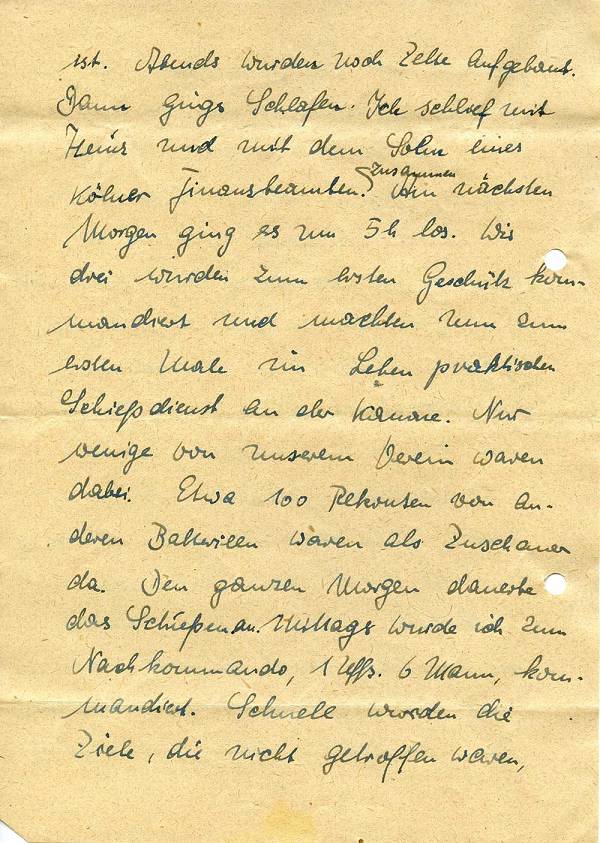 ist. Abends wurden noch Zelte aufgebaut.
Dann gings Schlafen. Ich schlief mit
Heinz und mit dem Sohn eines
Kölner Finanzbeamten zusammen. Am nächsten
Morgen ging es um 5h los. Wir
drei wurden zum ersten Geschütz kom-
mandiert und machten nun zum
ersten Male im Leben praktischen
Schießdienst an der Kanone. Nur
wenige von unserem Verein waren
dabei. Etwa 100 Rekruten von an-
deren Batterieen waren als Zuschauer
da. Den ganzen Morgen dauerte
das Schießen an. Mittags wurde ich zum
Nachkommando, 1 Uffz. 6 Mann, kom-
mandiert. Schnell wurden die
Ziele, die nicht getroffen waren,